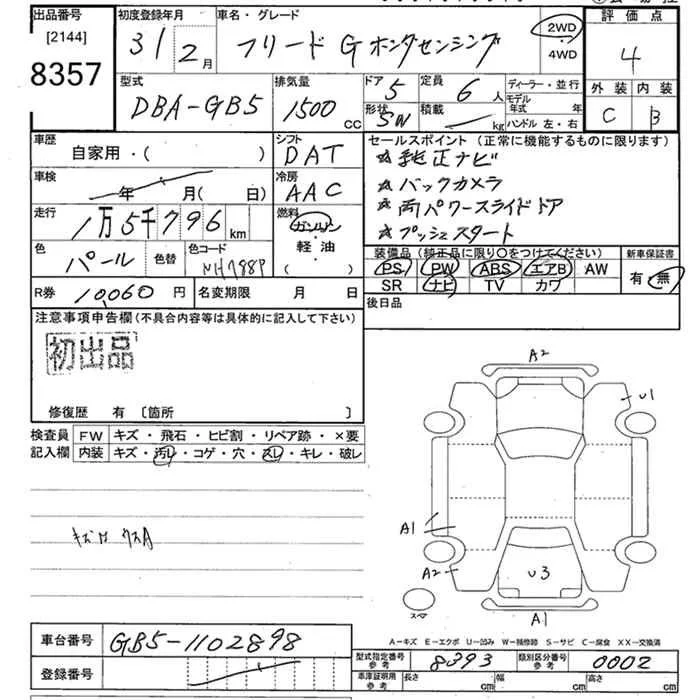 出品番号 初度登録年月 車名・グレード 評価点
[2144]
8357
31 2月 フリード G ホンダセンシング 2WD 4WD 4
外装 内装
C B
型式 排気量 ドア 定員 ディーラー・並行
DBA-GB5 1500cc 5 6人
形状 積載 モデル年式 年
SW kg ハンドル 左・右
車歴 シフト セールスポイント(正常に機能するものに限ります)
自家用・( ) DAT ☆純正ナビ
車検 冷房 ☆バックカメラ
年 月( 日) AAC ☆両パワースライドドア
走行 燃料 ☆プッシュスタート
1万5千796km ガソリン・軽油( )
色 色替 色コード 装備品(純正品に限り○をつけてください) 新車保証書
パール NH788P PS PW ABS エアB AW 有・無
SR ナビ TV カワ
R券 10,060円 名変期限 月 日 後日品
注意事項申告欄(不具合内容等は具体的に記入して下さい)
初出品
修復歴 有 [箇所 ]
検査員 FW キズ・飛石・ヒビ割・リペア跡・×要
記入欄 内装 キズ・汚レ・コゲ・穴・スレ・キレ・破レ
A2
U1
A1
A2
U3
スペア
A1
A-キズ E-エクボ U-凹み W-補修跡 S-サビ C-腐食 XX-交換済
車台番号 GB5-1102898
型式指定番号 参考 8393 類別区分番号 参考 0002
登録番号
車庫証明用 参考 長さ cm 幅 cm 高さ cm